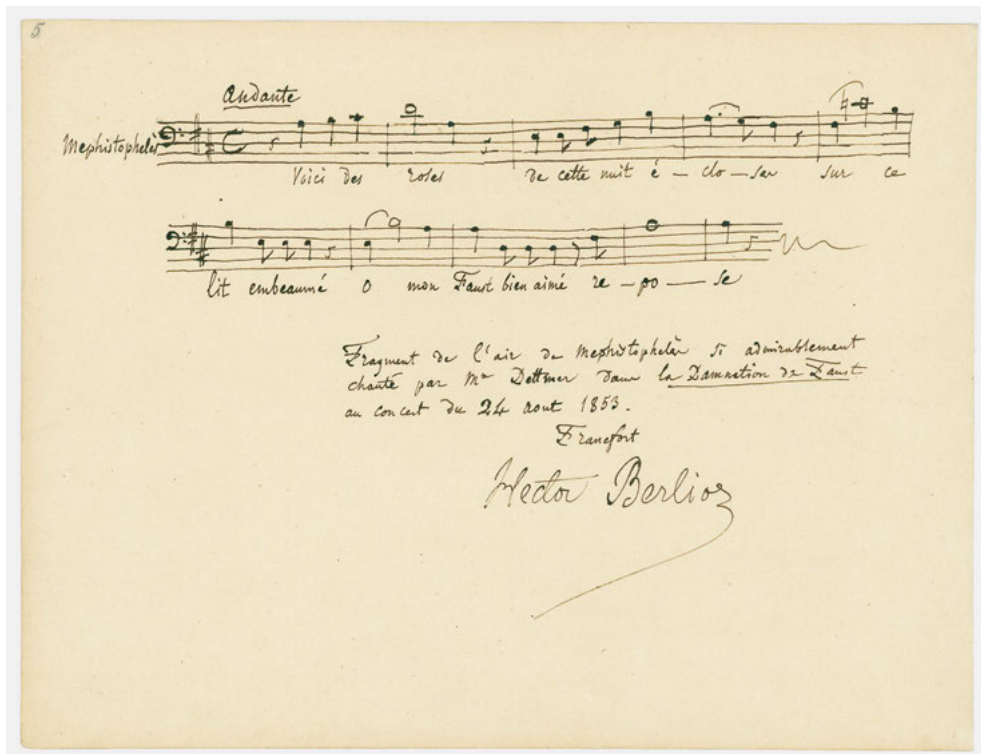 5
Andante
Mephistophelès
Voici des roses de cette nuit é – clo – ses sur ce
lit embeaumé o mon Faust bien aimé re – po – se
Fragment de l'air de Mephistophelès si admirablement
chanté par Mr Dettmer dans la Damnation de Faust
au concert du 24 aout 1853.
Francfort
Hector Berlioz